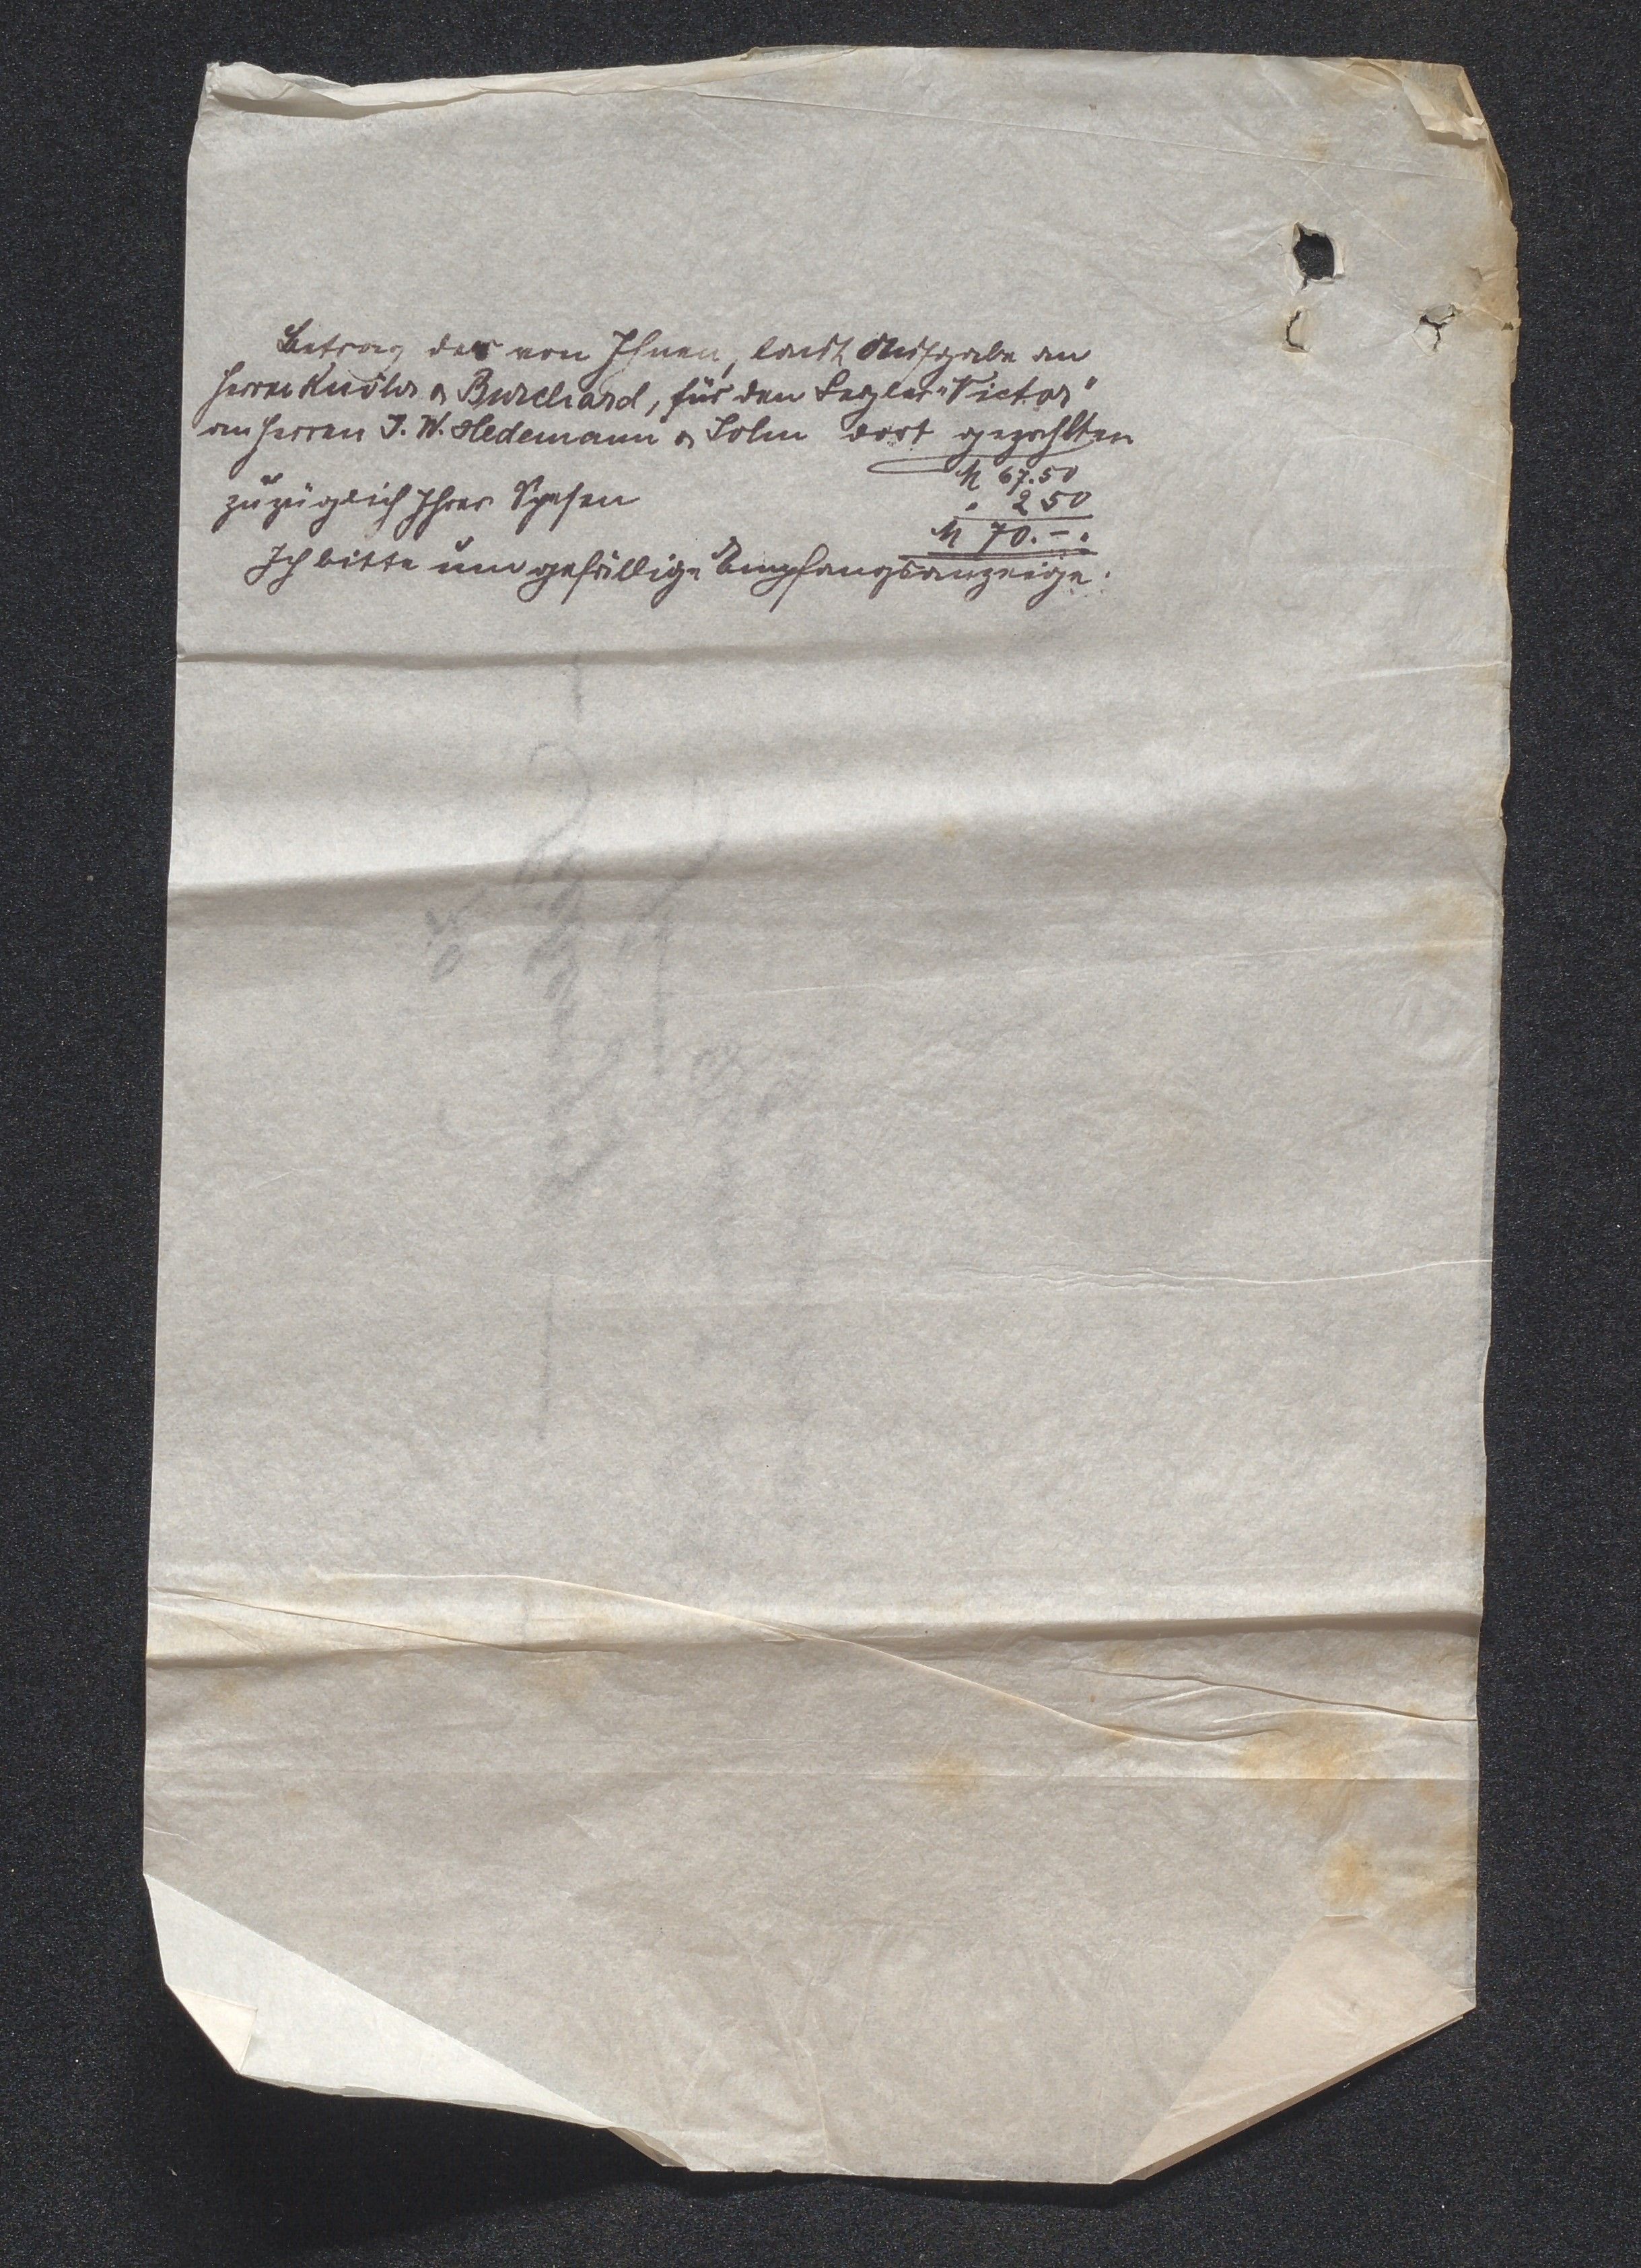 Betrag der von Ihnen, laut Aufgabe an
Herren Knöhr & Burchard, für den Segler "Victor"
an Herren J. W. Hedemann & Sohn dort gezahlten
M 67.50
zuzüglich Ihrer Spesen " 2 50
M 70.-.
Ich bitte um gefällige Empfangsanzeige.